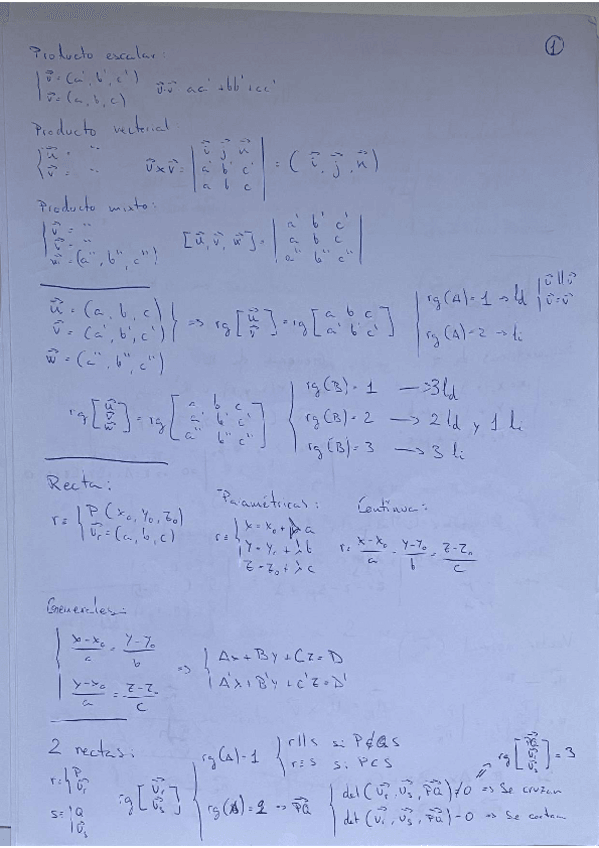 1
Producto escalar:
{ v⃗ = (a', b', c')
v⃗ = (a, b, c)   v⃗·v⃗ aa' + bb' + cc'
Producto vectorial
{ u⃗ = "
v⃗ = "   v⃗ x v⃗ = | i⃗ j⃗ k⃗ | = ( i⃗, j⃗, k⃗ )
a' b' c'
a b c
Producto mixto:
{ v⃗ = "
v⃗ = "
w⃗ = (a'', b'', c'')   [u⃗, v⃗, w⃗] = | a' b' c' |
a b c
a'' b'' c''
u⃗ = (a, b, c)
v⃗ = (a', b', c') } => rg [u⃗ v⃗] = rg [a b c
a' b' c']
{ rg(A) = 1 -> ld | u⃗ || v⃗
u⃗ = v⃗
rg(A) = 2 -> li
w⃗ = (a'', b'', c'')
rg [u⃗ v⃗ w⃗] = rg [a b c
a' b' c'
a'' b'' c'']
{ rg(B) = 1 -> 3 ld
rg(B) = 2 -> 2 ld y 1 li
rg(B) = 3 -> 3 li
Recta:
r ≡ { P (x₀, y₀, z₀)
v⃗r = (a, b, c)
Paramétricas:
r ≡ { x = x₀ + λ a
y = y₀ + λ b
z = z₀ + λ c
Continua:
r ≡ x-x₀/a = y-y₀/b = z-z₀/c
Generales:
{ x-x₀/a = y-y₀/b
x-x₀/a = z-z₀/c
=> { Ax + By + Cz = D
A'x + B'y + C'z = D'
2 rectas:
r ≡ { P
v⃗r
s ≡ { Q
v⃗s
rg [v⃗r v⃗s]
{ rg(A) = 1 { r||s si P∉ s
r ≡ s si P ∈ s
rg(A) = 2 => PQ⃗ { det (v⃗r, v⃗s, PQ⃗) ≠ 0 => Se cruzan
det (v⃗r, v⃗s, PQ⃗) = 0 => Se cortan
rg [ ] = 3